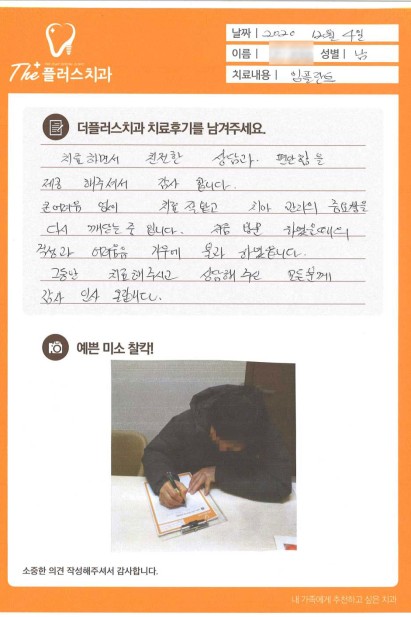 날짜 | 2020 12월 4일
이름 | 성별 | 남
치료내용 | 임플란트
The+ 플러스치과
더플러스치과 치료후기를 남겨주세요.
치료하면서 친절한 상담과. 편안함을
제공 해주셔서 감사 합니다.
큰 어려움 없이 치료 잘 받고 치아 관리의 중요함을
다시 깨닫는 줄 됩니다. 처음 방문 하였을때의
걱정과 어려움을
그동안 치료해주시고 상담해 주신 모든분께
감사 인사 드립니다.
예쁜 미소 찰칵!
소중한 의견 작성해주셔서 감사합니다.
내 가족에게 추천하고 싶은 치과